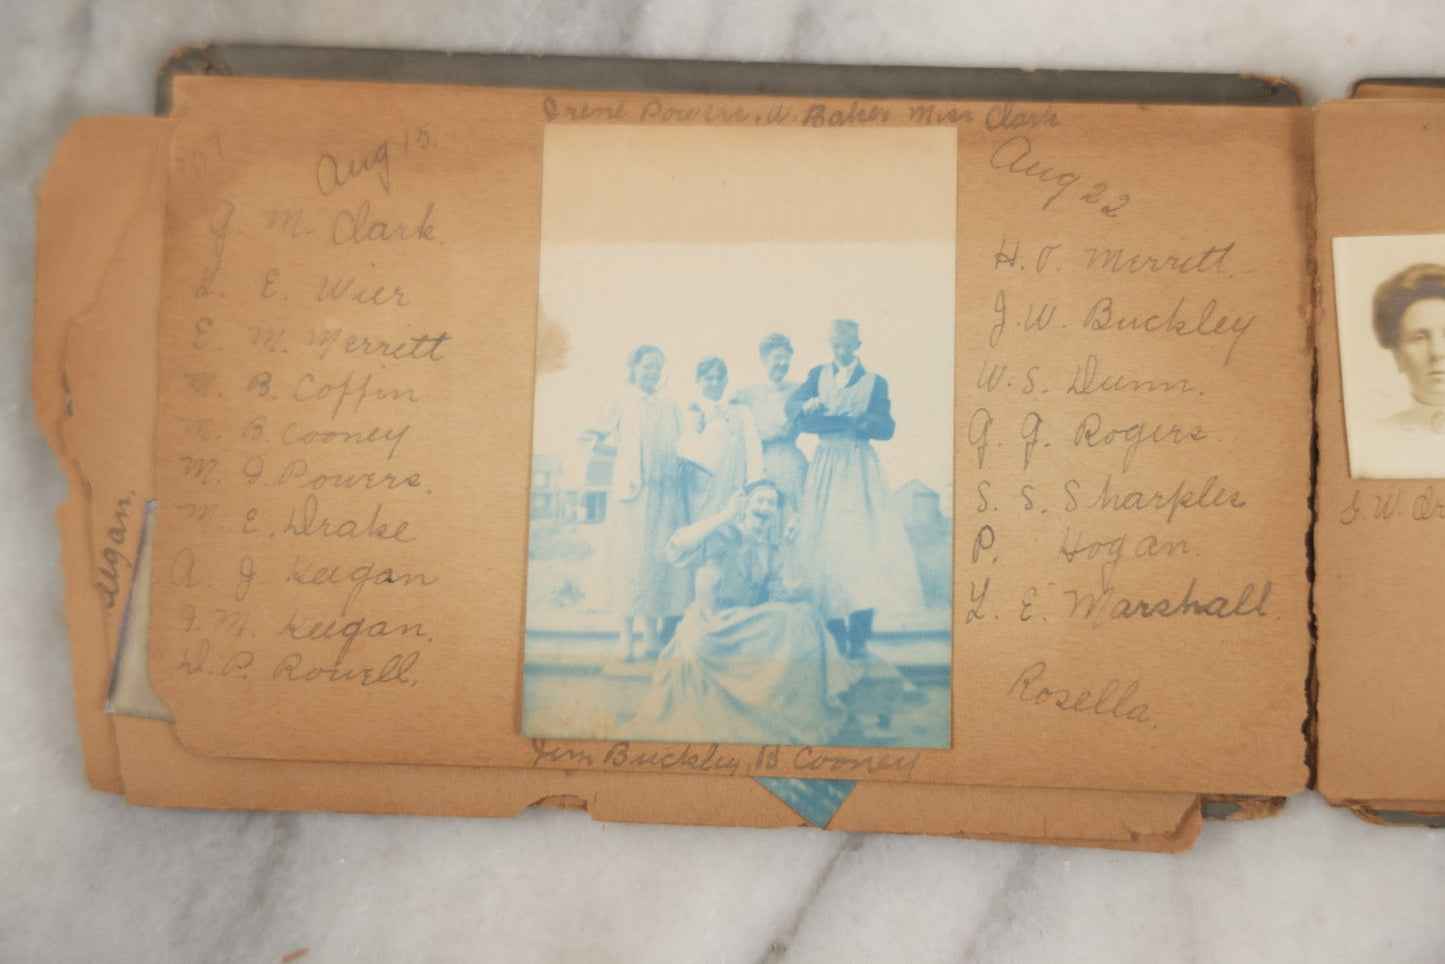 Irene Powers, W. Baker Miss Clark
Aug 15.
G. M. Clark.
L. E. Wier
E. M. Merritt
M. B. Coffin
M. B. Cooney
M. I. Powers.
M. E. Drake
A. J. Keegan
I. M. Keegan.
D. P. Rowell.
Jim Buckley, B Cooney
Aug 22
H. T. Merritt.
J. W. Buckley
W. S. Dunn.
G. G. Rogers.
S. S. Sharples
P. Hogan.
L. E. Marshall.
Rosella.
eegan.
G. W.